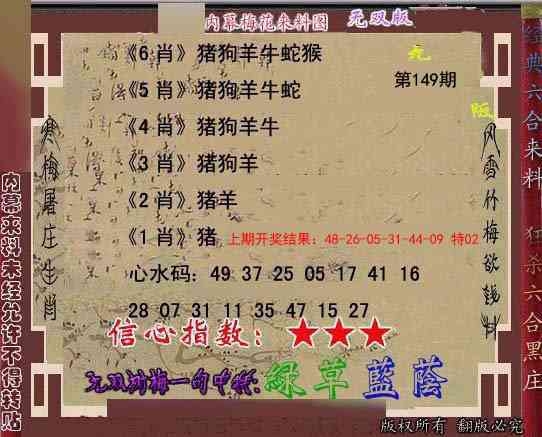 内幕梅花来料图 无双版
《6 肖》猪狗羊牛蛇猴
《5 肖》猪狗羊牛蛇
《4 肖》猪狗羊牛
《3 肖》猪狗羊
《2 肖》猪羊
《1 肖》猪 上期开奖结果：48-26-05-31-44-09 特02
第149期
心水码：49 37 25 05 17 41 16
28 07 31 11 35 47 15 27
信心指数：★★★
绿草蓝荫
寒梅屠庄生肖
风雪竹梅欲钱料
内幕来料未经允许不得转贴
经典六合来料
狂杀六合黑庄
版权所有 翻版必究